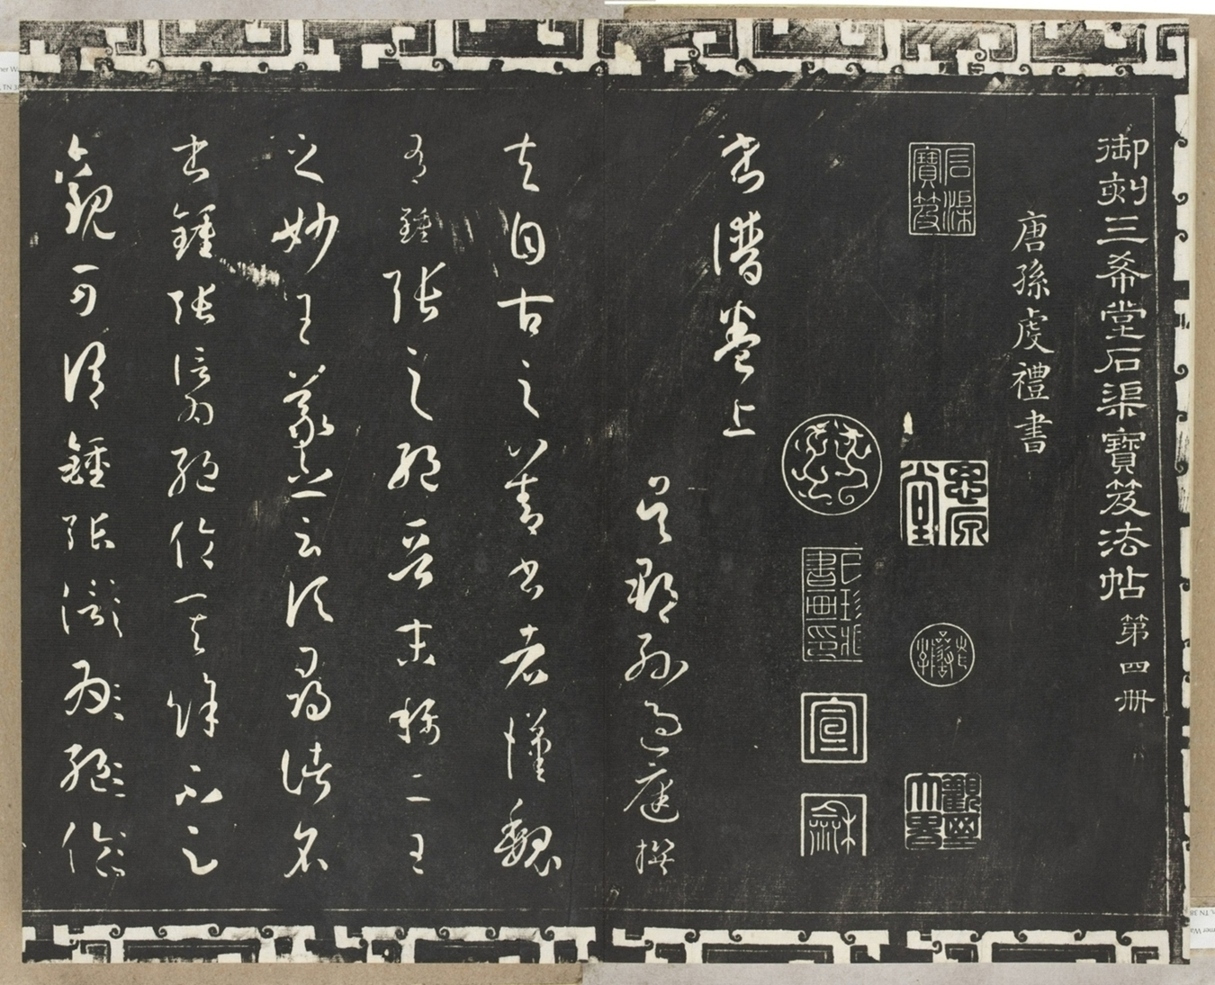 御刻三希堂石渠寶笈法帖第四冊
唐孫虔禮書
石渠寶笈
宣
龢
書譜卷上
吳郡孫過庭撰
夫自古之善書者漢魏
有鍾張之絕晉末稱二王
之妙王羲之云頃尋諸名
書鍾張信為絕倫其餘不足
觀可謂鍾張信為絕倫